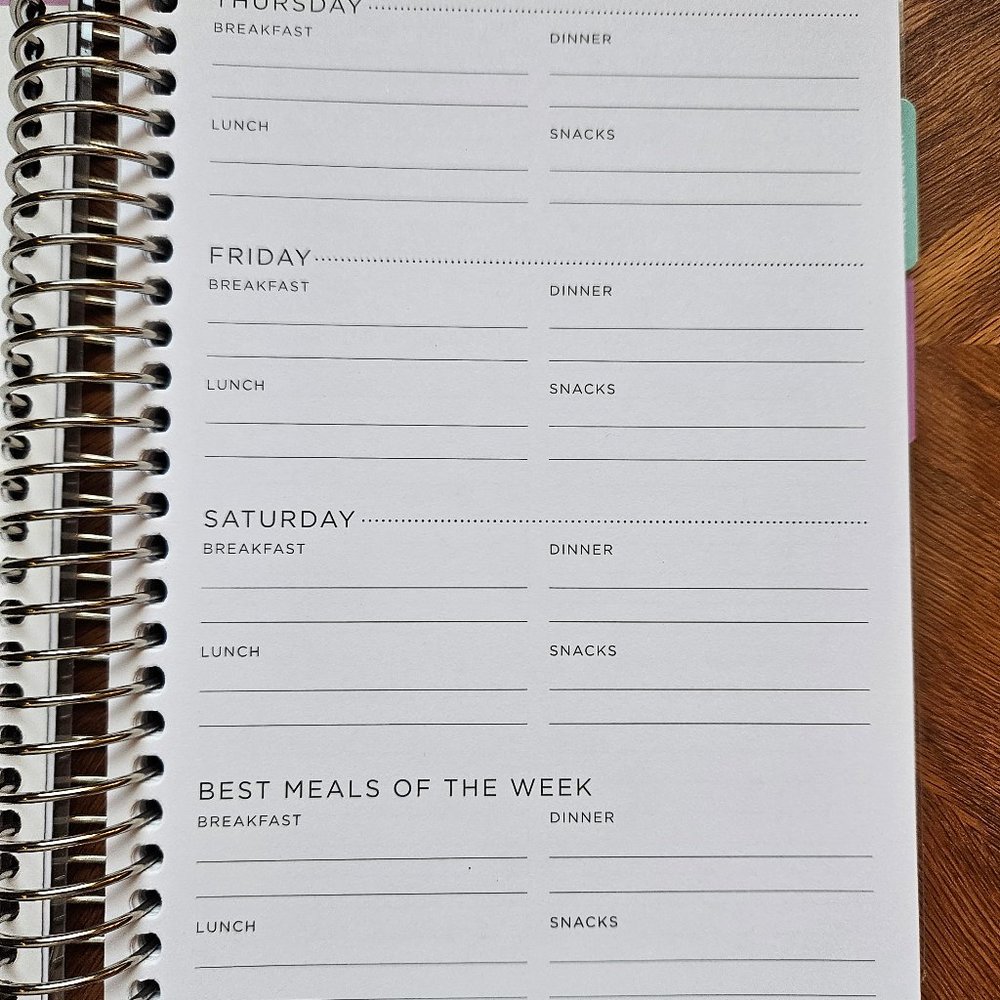 THURSDAY
BREAKFAST DINNER
LUNCH SNACKS
FRIDAY
BREAKFAST DINNER
LUNCH SNACKS
SATURDAY
BREAKFAST DINNER
LUNCH SNACKS
BEST MEALS OF THE WEEK
BREAKFAST DINNER
LUNCH SNACKS